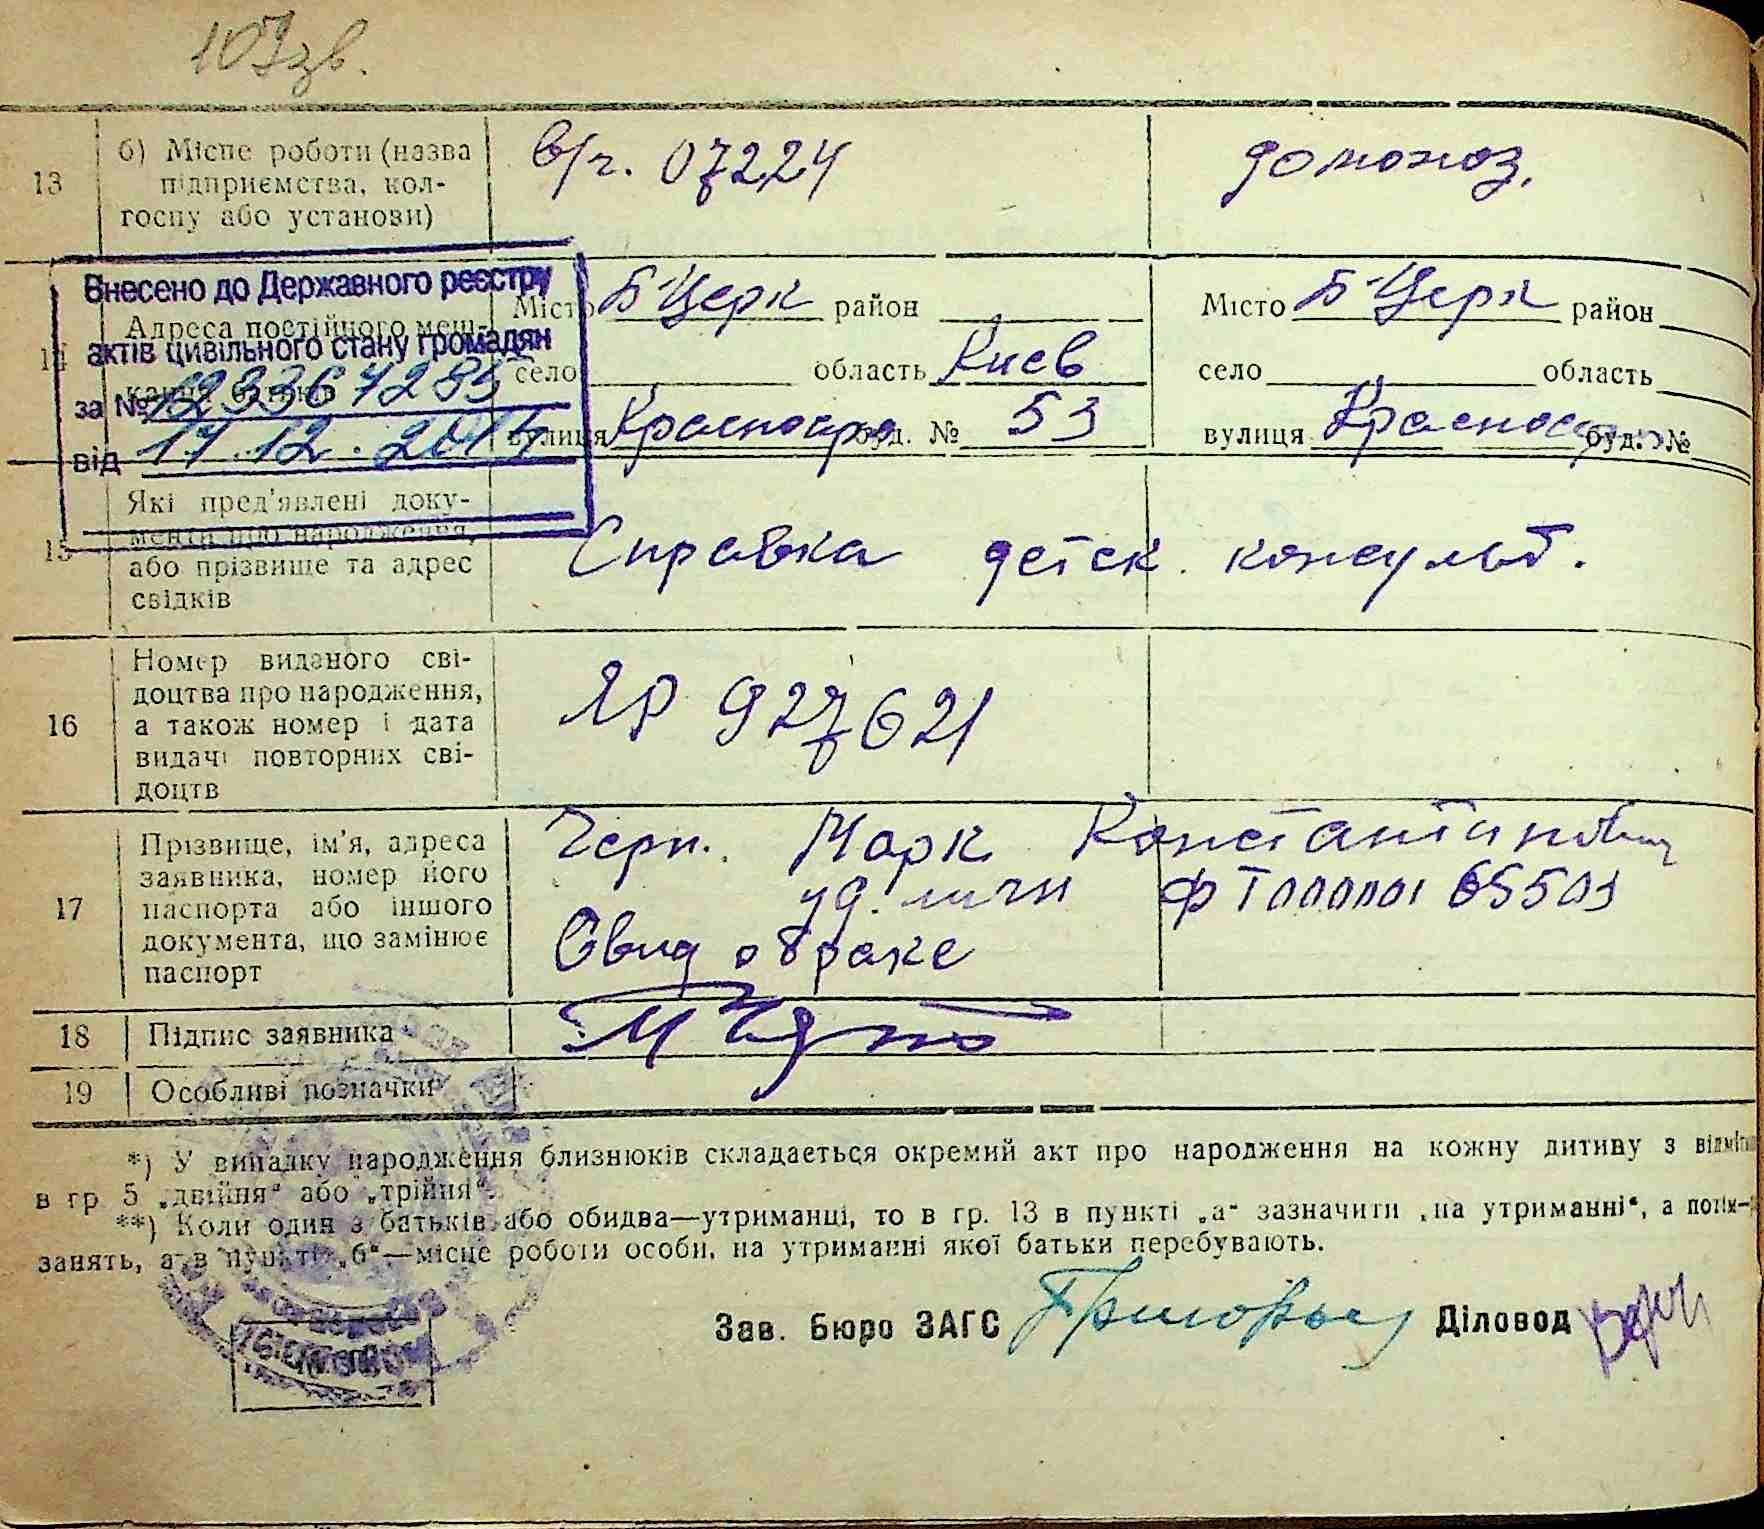 107зв.
13 б) Місце роботи (назва підприємства, колгоспу або установи) в/ч. 07224 домохоз.
Внесено до Державного реєстру
актів цивільного стану громадян
за №
від 17.12.2014
14 Адреса постійного меш-
Місто Б-Церк район Місто Б-Церк район
село область Киев село область
вулиця Красноарм буд. № 53 вулиця Красноарм буд. №
15 Які пред'явлені доку-
менти про народження,
або прізвище та адрес
свідків
Справка детск. консульт.
16 Номер виданого сві-
доцтва про народження,
а також номер і дата
видачі повторних сві-
доцтв
ЯР 927621
17 Прізвище, ім'я, адреса
заявника, номер його
паспорта або іншого
документа, що замінює
паспорт
Черн. Марк Константинович
уд. личн ФТ
Свид о браке
18 Підпис заявника
19 Особливі позначки
*) У випадку народження близнюків складається окремий акт про народження на кожну дитину з
в гр 5 „двійня“ або „трійня“.
**) Коли один з батьків або обидва—утриманці, то в гр. 13 в пункті „а“ зазначити „на утриманні“, а потім
занять, а в пункті „б“—місце роботи особи, на утриманні якої батьки перебувають.
Зав. Бюро ЗАГС Діловод